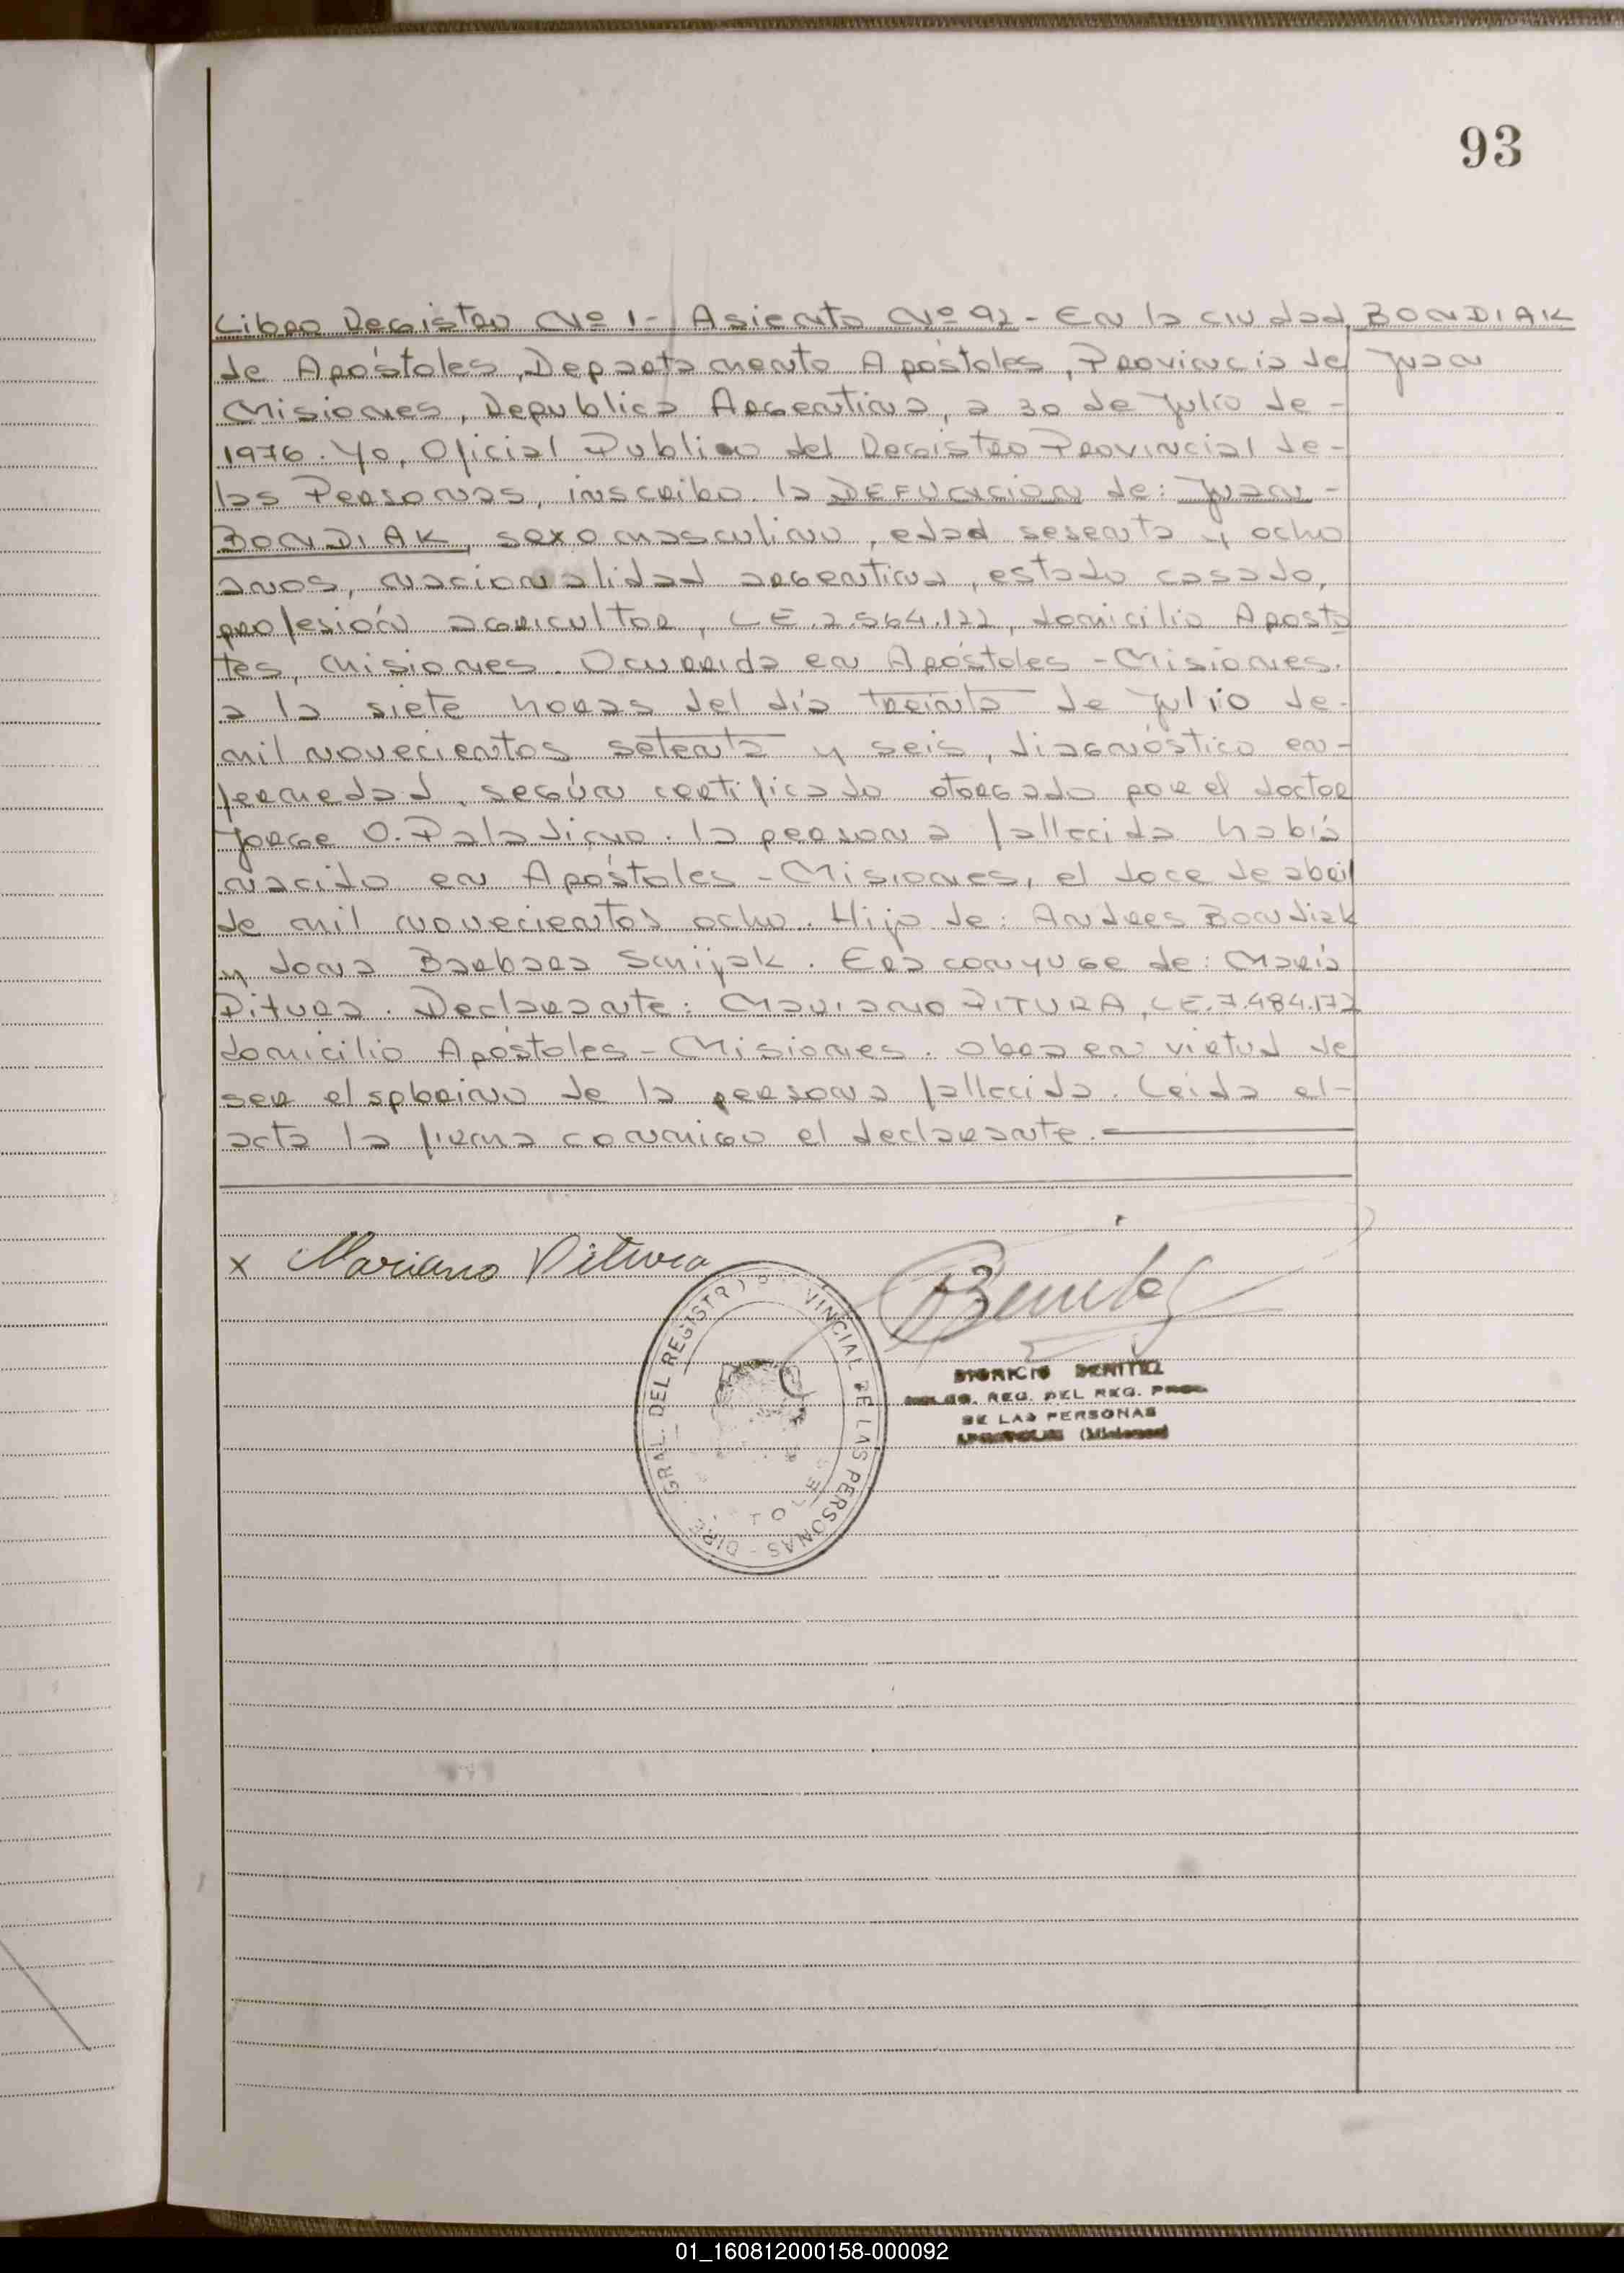 93
Libro Registro Nº 1 - Asiento Nº 92 - En la ciudad BONDIAK
de Apóstoles, Departamento Apóstoles, Provincia de Juan
Misiones, Republica Argentina, a 30 de Julio de -
1976. Yo, Oficial Publico del Registro Provincial de -
las Personas, inscribo la DEFUNCION de: Juan -
BONDIAK, sexo masculino, edad sesenta y ocho
anos, nacionalidad argentina, estado casado,
profesión agricultor, L.E. 2.564.122, domicilio Aposto
les, Misiones. Ocurrida en Apóstoles - Misiones.
a la siete horas del día treinta de Julio de -
mil novecientos setenta y seis, diagnóstico en -
fermedad, según certificado otorgado por el doctor
Jorge O. Paladino. la persona fallecida había
nacido en Apóstoles - Misiones, el doce de abril
de mil novecientos ocho. Hijo de: Andres Bondiak
y dona Barbara Smijak. Era conyuge de: María
Pitura. Declarante: Mariano PITURA, L.E. 7.484.172
domicilio Apóstoles - Misiones. obra en virtud de
ser el sobrino de la persona fallecida. Leida el -
acta la firma conmigo el declarante.
x Mariano Pitura
Benitez
DIONICIO BENITEZ
REG. DEL REG. PROV.
DE LAS PERSONAS
APOSTOLES (Misiones)
GRAL. DEL REGISTRO VINCIAL DE LAS PERSONAS - DIRE
TOLES
01_160812000158-000092